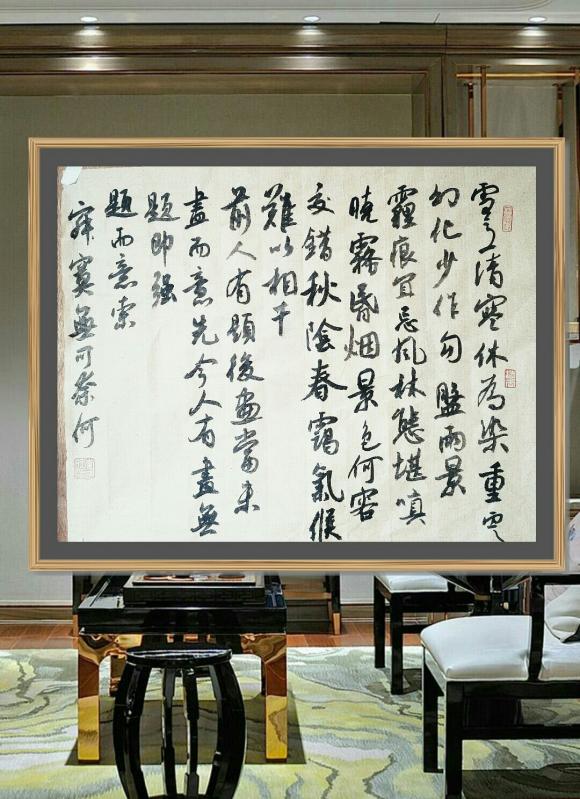 雪意清寒休为染重雲
幻化少作勾盤雨景
霾痕宜忌風林態堪嗔
曉霧昏烟景色何容
交錯秋陰春靄氣候
難以相干
前人有題後畫當未
畫而意先今人有畫無
題即强
題而意索
寞無可奈何